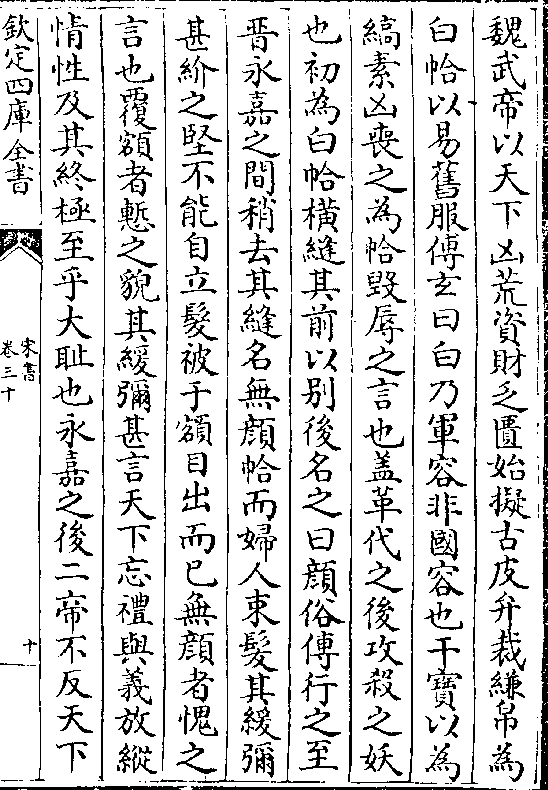 魏武帝以天下凶荒資財乏匱始擬古皮弁裁縑帛為
白帢以易舊服傅玄曰白乃軍容非國容也干寶以為
縞素凶喪之為帢毀辱之言也盖革代之後攻殺之妖
也初為白帢橫縫其前以别後名之曰顔俗傳行之至
晋永嘉之間稍去其縫名無顔帢而婦人束髮其緩彌
甚紒之堅不能自立髮被于額目出而已無顔者愧之
言也覆額者慙之貌其緩彌甚言天下忘禮與義放縱
情性及其終極至乎大耻也永嘉之後二帝不反天下
欽定四庫全書
宋書
卷三十
十